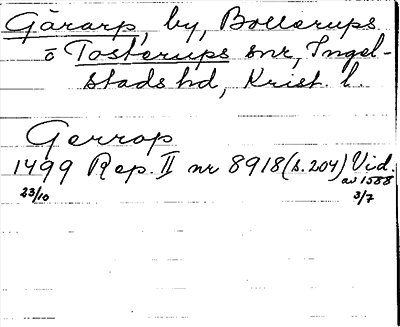 Gärarp, by, Bollerups
o Tosterups snr, Ingel-
stads hd, Krist. l.
Gerrop
1499 Rep. II nr 8918 (s. 204) Vid.
av 1588
23/10 3/7